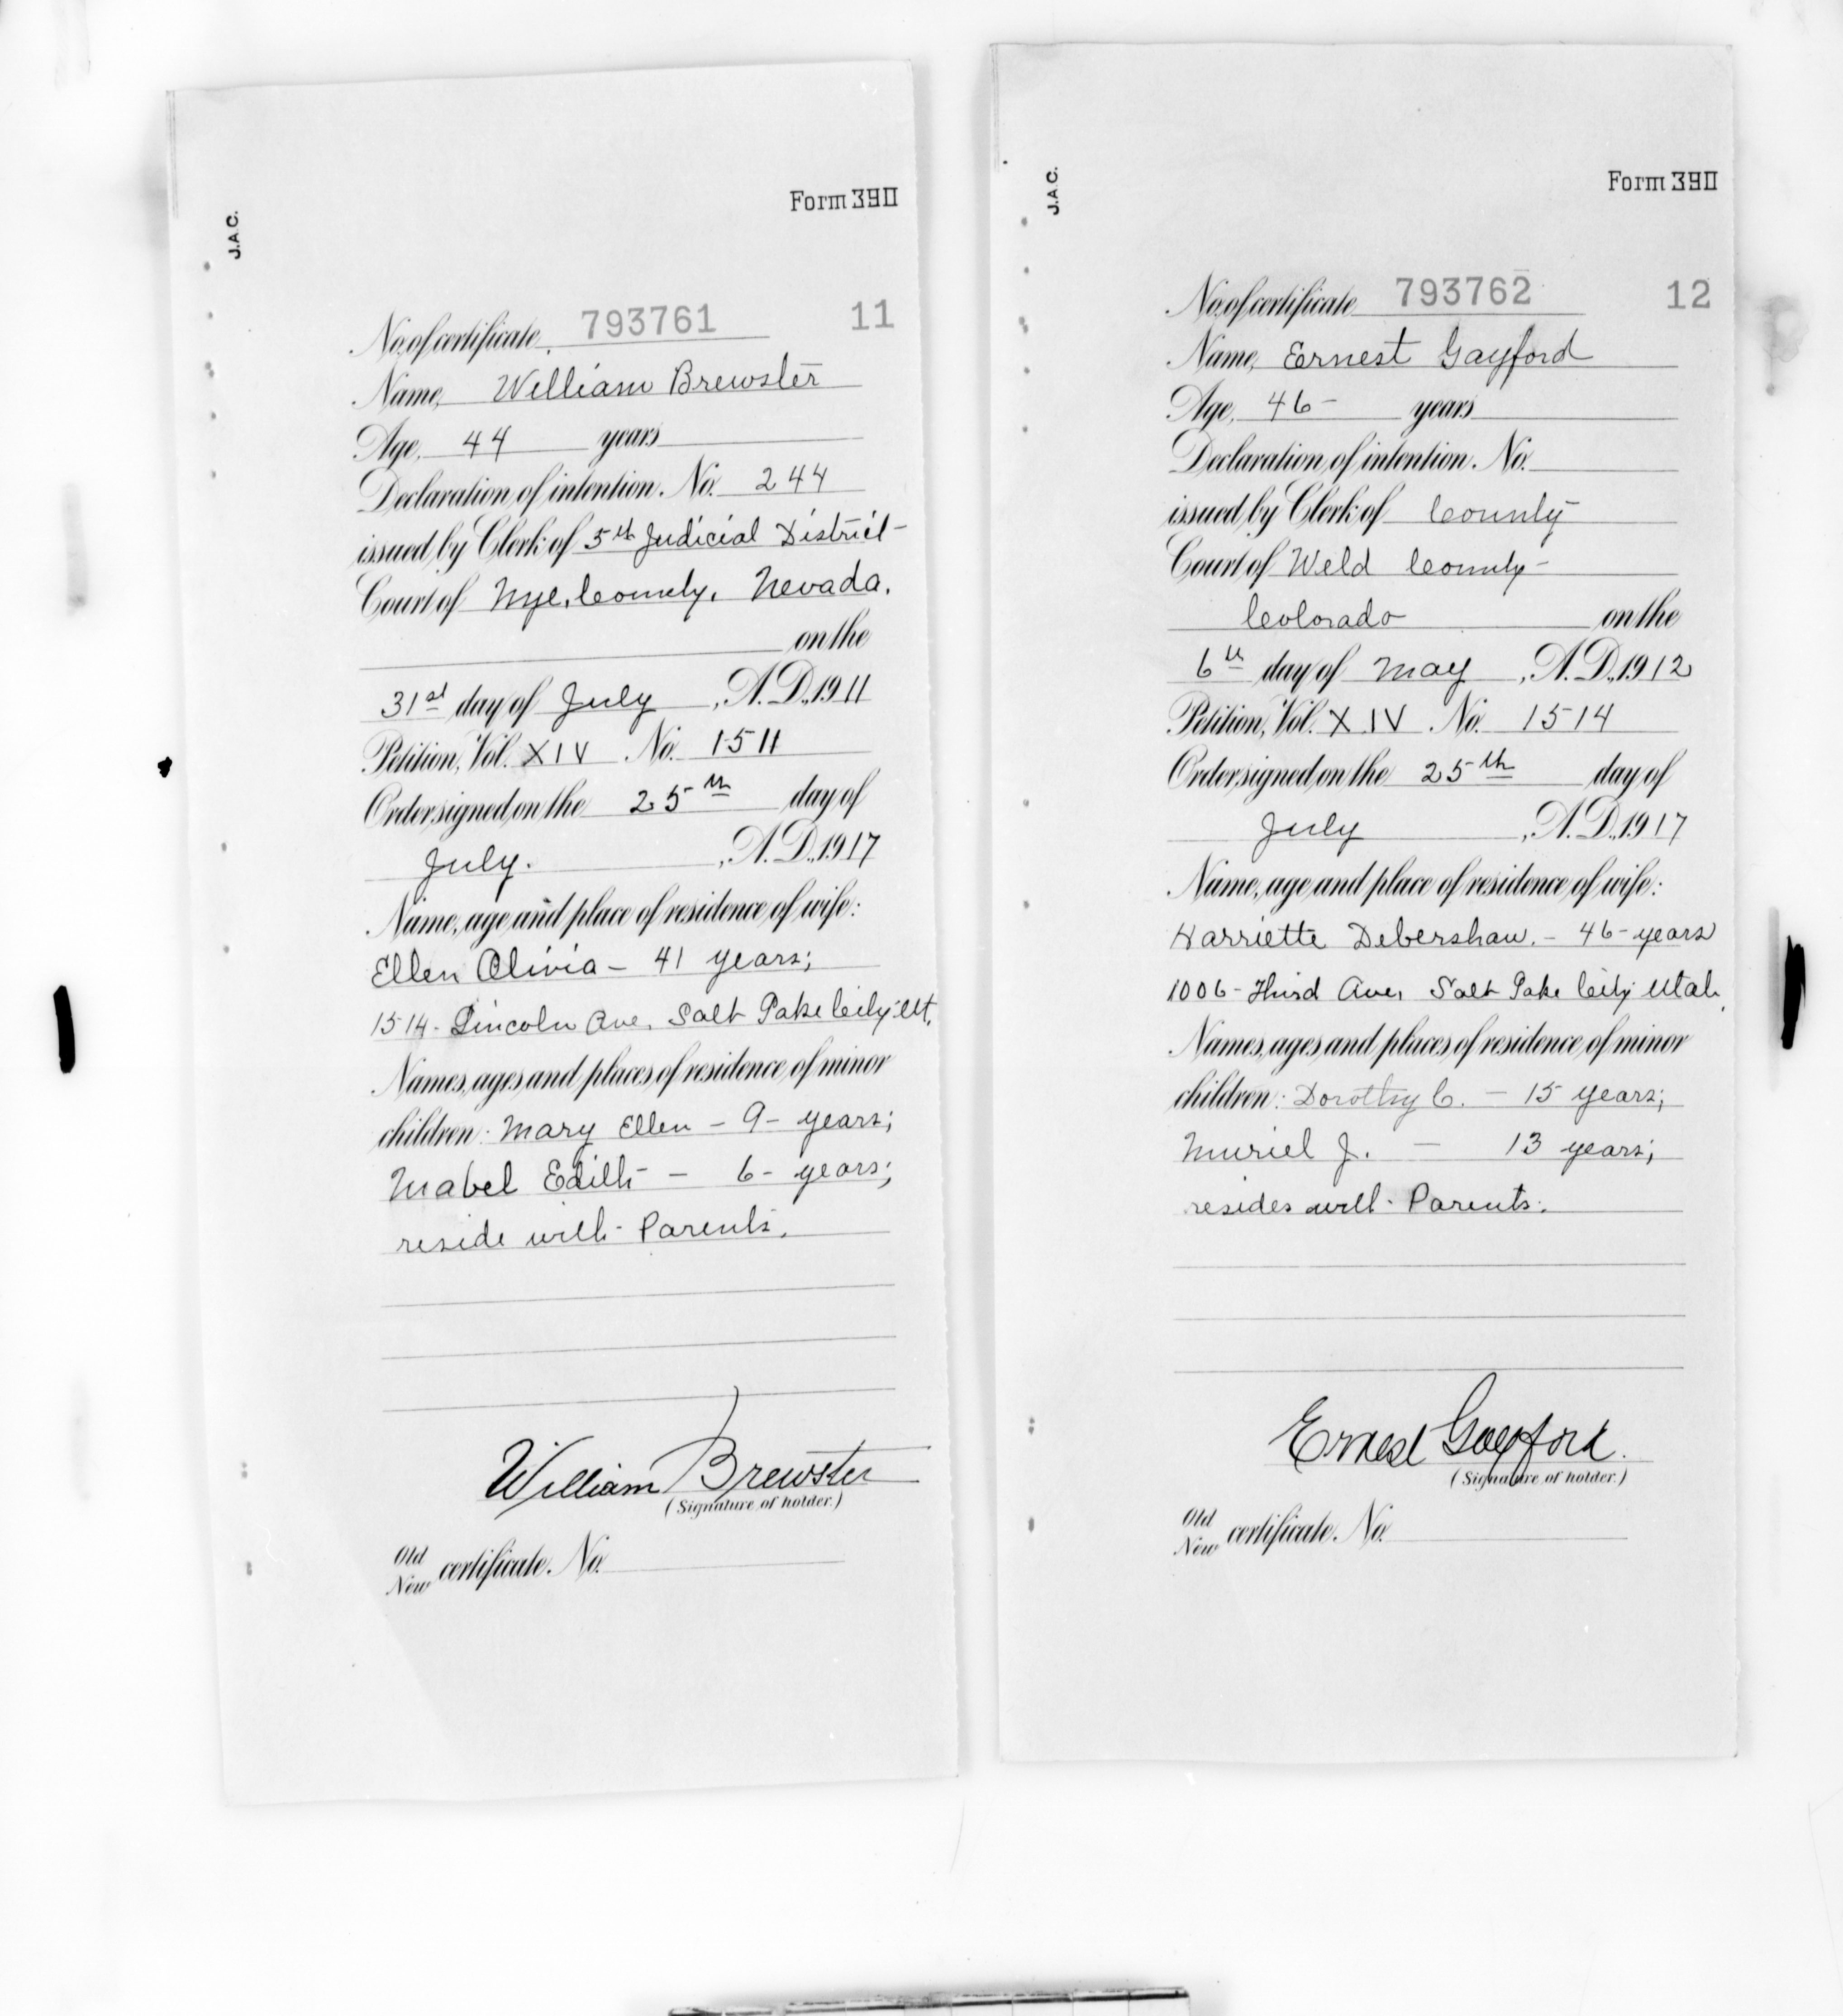 J.A.C.
Form 390
No. of certificate, 793761 11
Name, William Brewster
Age, 44 years
Declaration of intention. No. 244
issued by Clerk of 5th Judicial District
Court of Nye, County, Nevada.
on the
31st day of July, A.D., 1911
Petition, Vol. XIV No. 1511
Order signed on the 25th day of
July., A.D., 1917
Name, age and place of residence of wife:
Ellen Olivia - 41 years;
1514 - Lincoln Ave, Salt Lake City Ut.
Names, ages and places of residence of minor
children: Mary Ellen - 9 - years;
Mabel Edith - 6 - years;
reside with Parents.
William Brewster
(Signature of holder.)
Old
New certificate. No.
J.A.C.
Form 390
No. of certificate 793762 12
Name, Ernest Gayford
Age, 46 - years
Declaration of intention. No.
issued by Clerk of County
Court of Weld County
Colorado on the
6th day of May, A.D., 1912
Petition, Vol. XIV No. 1514
Order signed on the 25th day of
July, A.D., 1917
Name, age and place of residence of wife:
Harriette Debershaw. - 46 - years
1006 - Third Ave, Salt Lake City Utah,
Names, ages and places of residence of minor
children: Dorothy C. - 15 years;
Muriel J. - 13 years;
resides with Parents.
Ernest Gayford.
(Signature of holder.)
Old
New certificate. No.